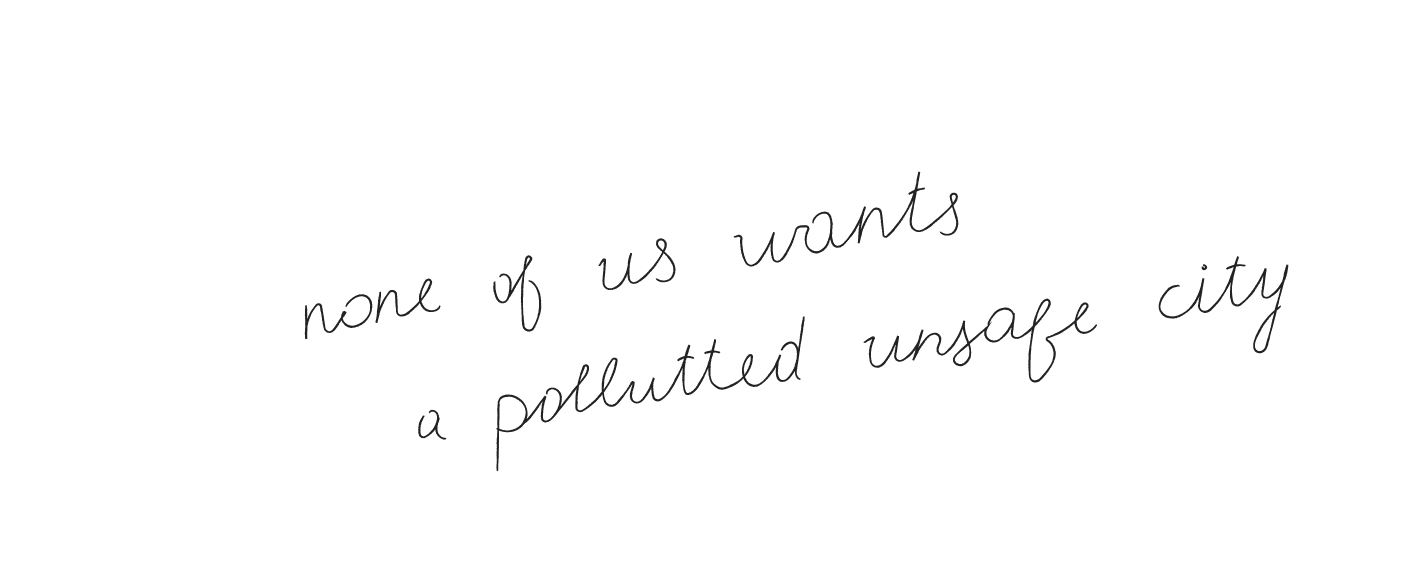 none of us wants
a pollutted unsafe city